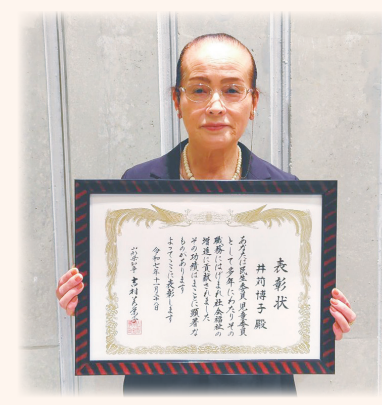 表彰状
井苅博子殿
あなたは民生委員児童委員
として多年にわたりその
職務にはげまれ社会福祉の
増進に貢献されました
その功績はまことに顕著な
ものがあります
よってここに表彰します
令和七年十一月二十八日
山形県知事 吉村美栄子